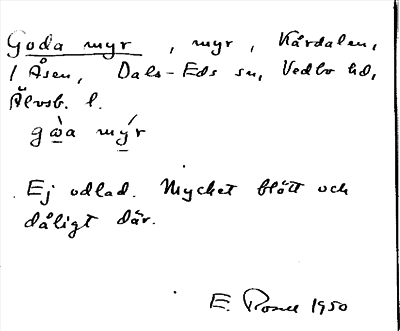 Goda myr, myr, Kårdalen,
1 Åsen, Dals-Eds sn, Vedbo hd,
Älvsb. l.
gὼa mýr
Ej odlad. Mycket blött och
dåligt där.
E. 1950